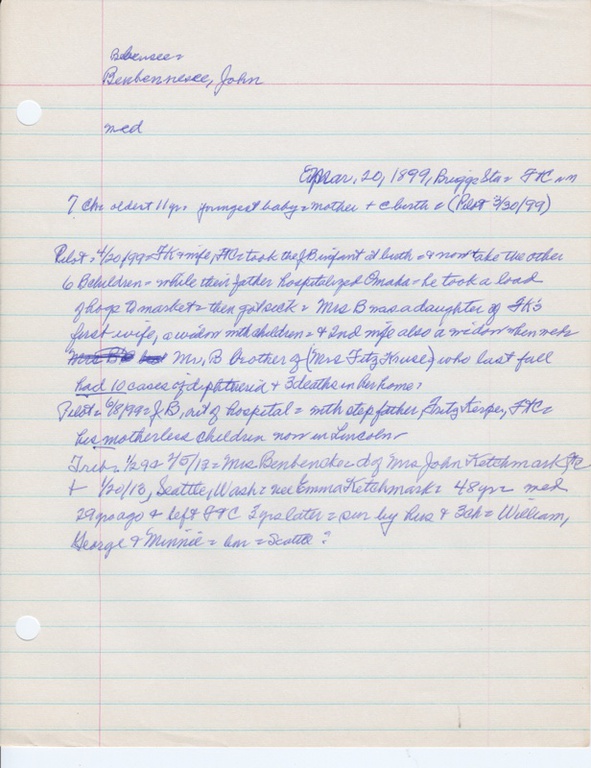 Benbennesee, John
med
Mar. 20, 1899, Briggs Sta = FtC
7 Ch = oldest 11 yrs youngest baby = mother + c birth = (Pilot 3/30/99)
Pilot = 4/20/99 = FK + wife, FtC = took the J B infant at birth = + now take the other
6 B children = while their father hospitalized Omaha = he took a load
of hogs to market = then got sick = Mrs B was a daughter of FK's
first wife, a widow with children = + 2nd wife also a widow = when
Mr. B brother of (Mrs Fitz Kruse) who last fall
had 10 cases of diphtheria + 3 deaths in her home =
Pilot = 6/8/99 = J B, out of hospital = with step father, Fritz FtC =
his motherless children now in Lincoln -
Trib = 1/29 2/5/13 = Mrs Benbencker d of Mrs John Ketchmark FtC
+ 1/20/13, Seattle, Wash = nee Emma Ketchmark = 48 yrs med
29 yrs ago + left FtC 3 yrs later = sur by hus + 3 ch = William,
George + Minnie = bur = Seattle ?